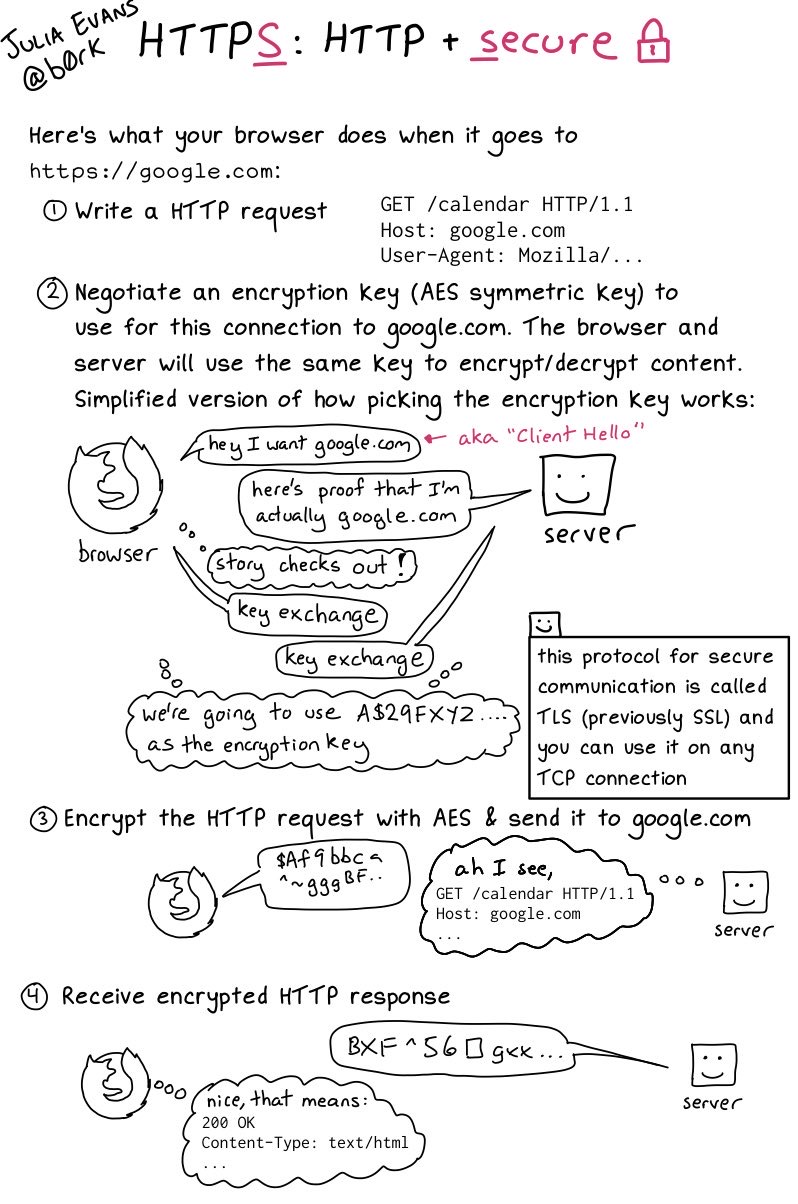 JULIA EVANS
@b0rk
HTTPS: HTTP + secure
Here's what your browser does when it goes to
https://google.com:
① Write a HTTP request
GET /calendar HTTP/1.1
Host: google.com
User-Agent: Mozilla/...
② Negotiate an encryption key (AES symmetric key) to
use for this connection to google.com. The browser and
server will use the same key to encrypt/decrypt content.
Simplified version of how picking the encryption key works:
hey I want google.com
aka "Client Hello"
here's proof that I'm
actually google.com
browser
server
story checks out!
key exchange
key exchange
we're going to use A$29FXYZ....
as the encryption key
this protocol for secure
communication is called
TLS (previously SSL) and
you can use it on any
TCP connection
③ Encrypt the HTTP request with AES & send it to google.com
$Af9bbca
^~gggBF..
ah I see,
GET /calendar HTTP/1.1
Host: google.com
...
server
④ Receive encrypted HTTP response
BXF^56□gkk...
server
nice, that means:
200 OK
Content-Type: text/html
...